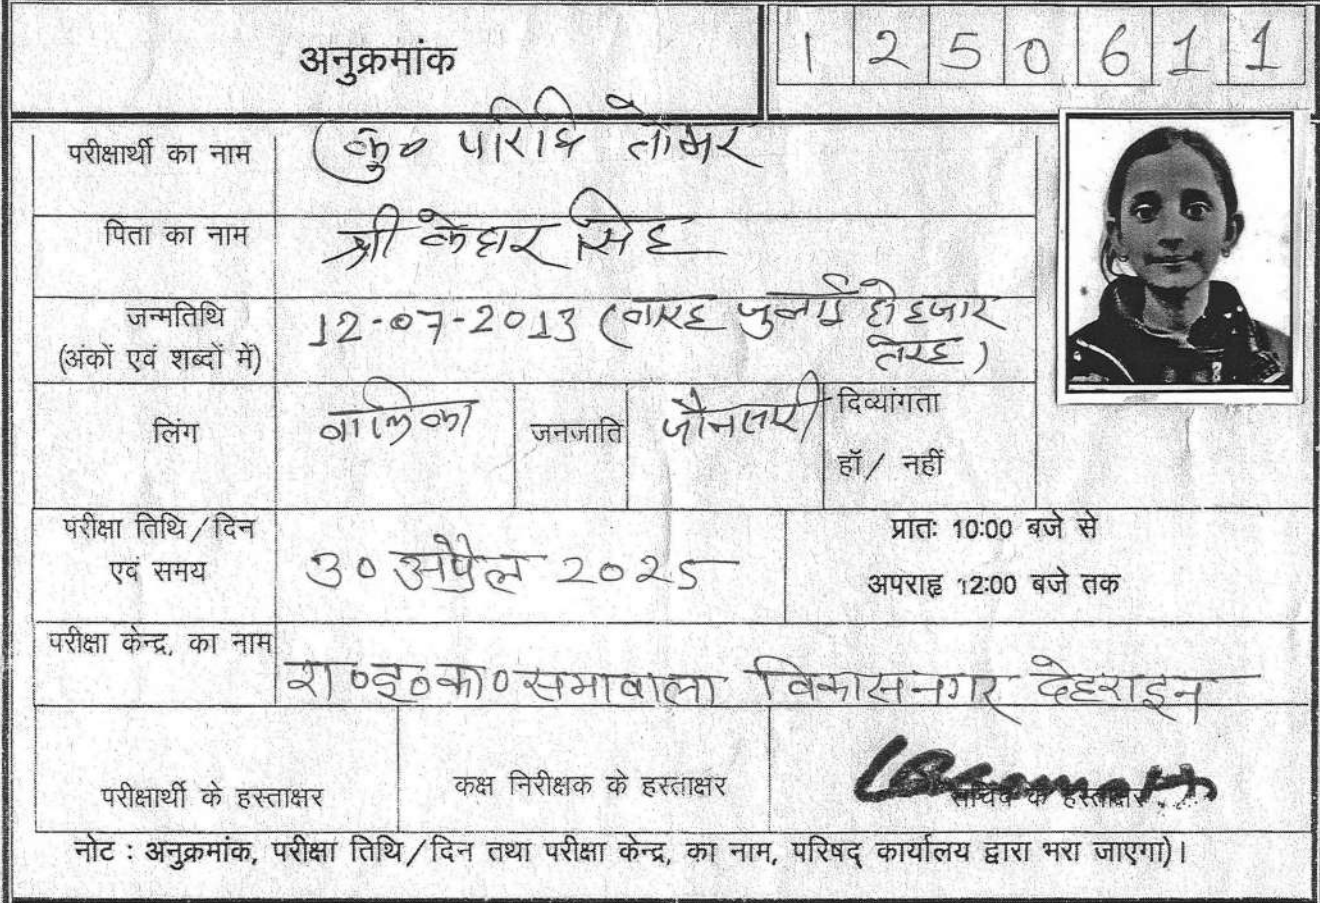 अनुक्रमांक 1 2 5 0 6 1 1
परीक्षार्थी का नाम कु० परिधि तोमर
पिता का नाम श्री केदार सिंह
जन्मतिथि 12-07-2013 (बारह जुलाई दो हजार
(अंकों एवं शब्दों में) तेरह)
लिंग बालिका जनजाति जौनसारी दिव्यांगता
हॉ/ नहीं
परीक्षा तिथि/दिन प्रातः 10:00 बजे से
एवं समय 30 अप्रैल 2025 अपराह्न 12:00 बजे तक
परीक्षा केन्द्र, का नाम
रा०इ०का०सभावाला विकासनगर देहरादून
परीक्षार्थी के हस्ताक्षर कक्ष निरीक्षक के हस्ताक्षर सचिव के हस्ताक्षर
नोट : अनुक्रमांक, परीक्षा तिथि/दिन तथा परीक्षा केन्द्र, का नाम, परिषद् कार्यालय द्वारा भरा जाएगा)।